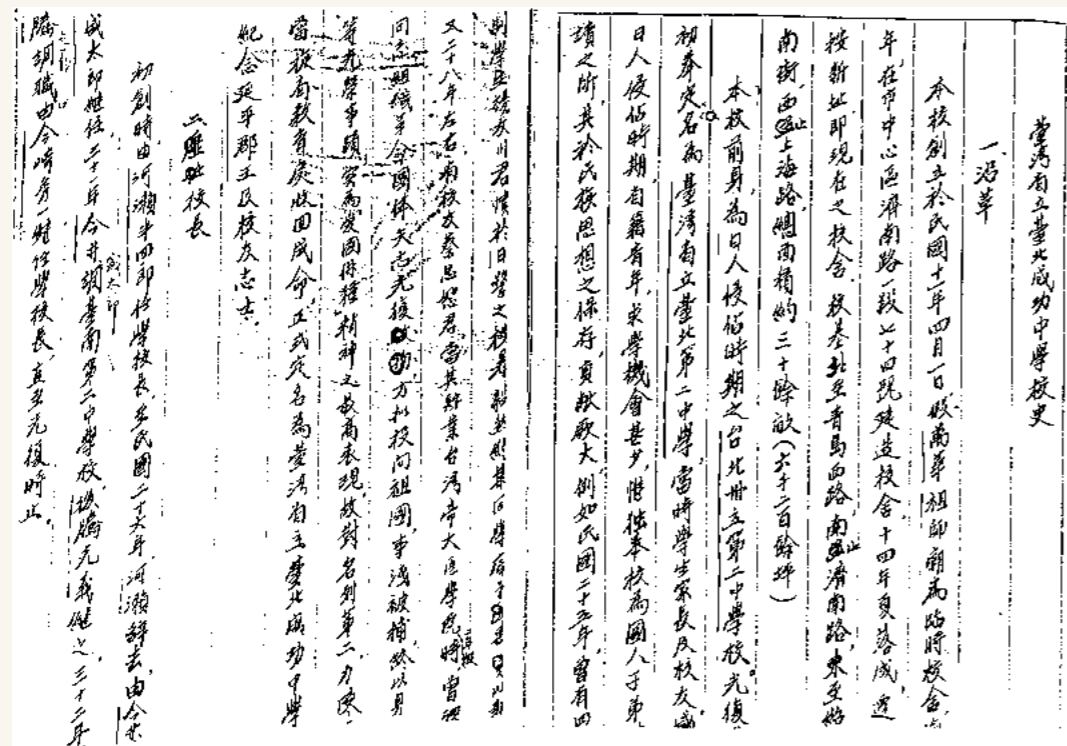 臺灣省立臺北成功中學校史
一、沿革
本校創立於民國十一年四月一日假萬華祖師廟為臨時校舍,
年,在市中心區濟南路一段七十四號建造校舍十四年夏落成,遷
按新址即現在之校舍.校基北至青島西路,南至濟南路,東至紹
南街,西止上海路,總面積約三十餘畝(六千二百餘坪)
本校前身,為日人侵佔時期之台北州立第二中學校。光復
初奉定名為臺灣省立臺北第二中學,當時學生家長及校友感
日人侵佔時期,省籍青年,求學機會甚少,惟独本校為國人子弟
讀之所,其於民族思想之保存,貢献敢大,例如民國二十五年,曾有四
又二十八年左右,有校友蔡忠恕君,當其肄業台灣帝大医學院時曾
同志組織革命團体矢志光復 方拟投向祖國,事洩被捕終以身
等光榮事蹟,實為愛國保種精神之最高表現,故對名列第二力陳
當被省教育處收回成命,正式定名為臺灣省立臺北成功中學
紀念延平郡王及校友志士.
二、歷任校長
初創時,由河瀨半四郎任學校長,至民國二十六年,河瀨辭去,由今井
盛太郎繼任,三十一年今井調臺南第二中學校,後藤元義繼之,三十二年
調職,由今崎秀一繼任學校長,直至光復時止.